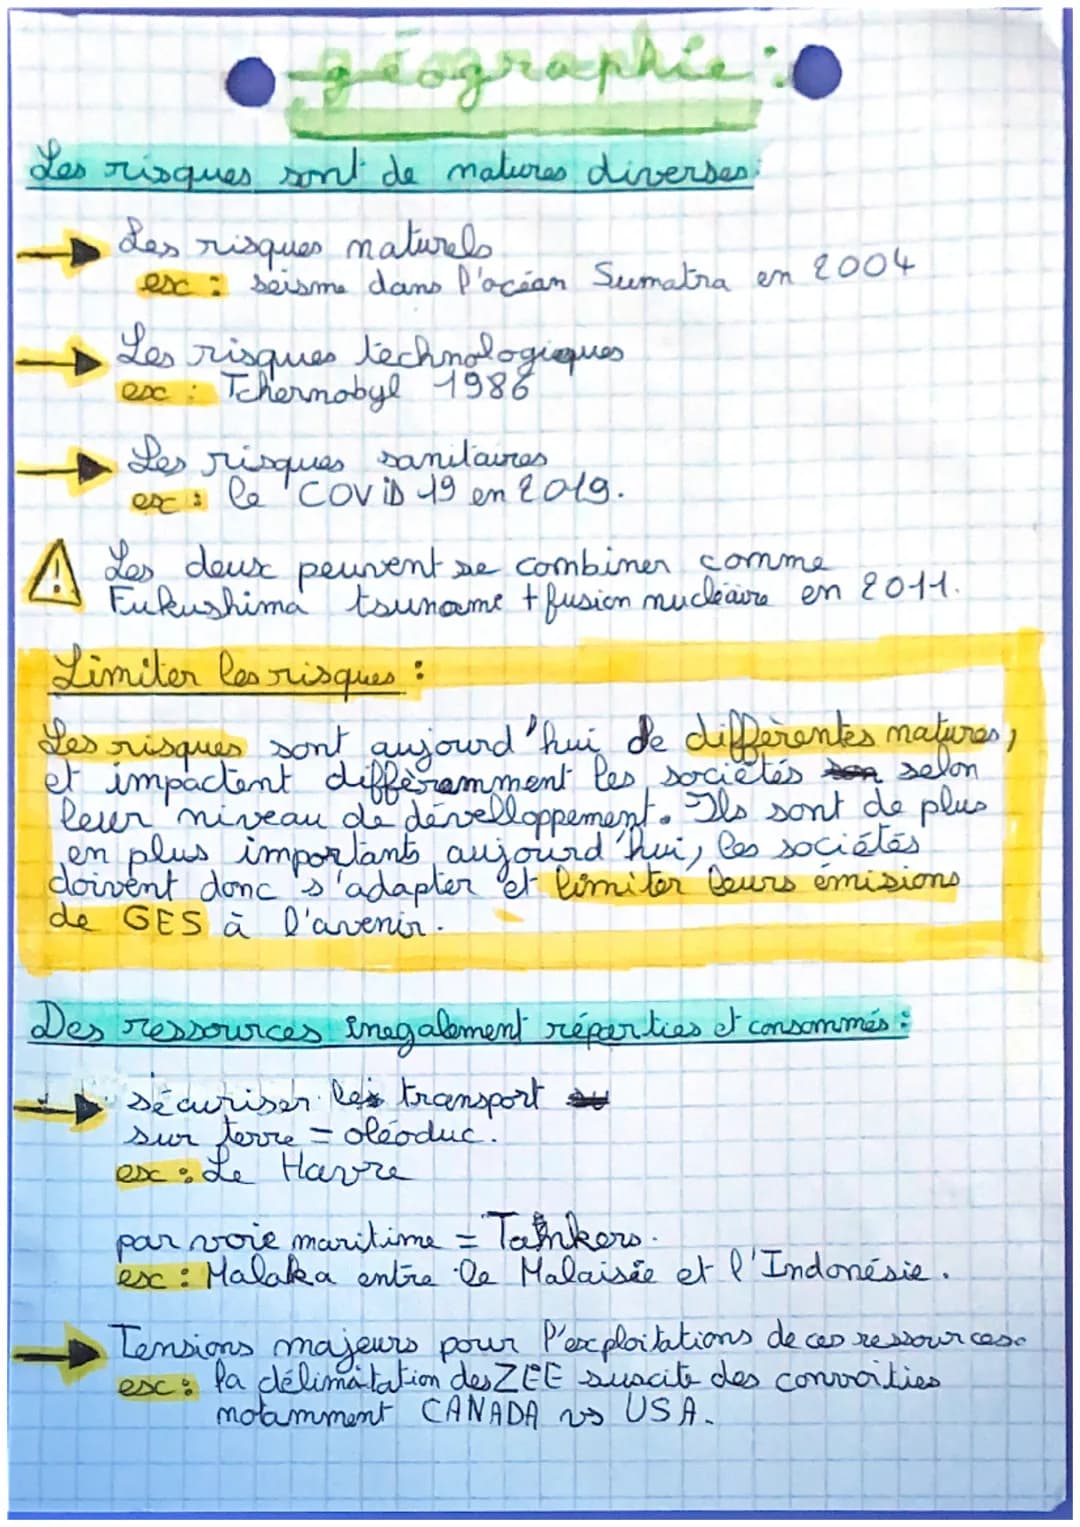 géographie :
Les risques sont de natures diverses :
Les risques naturels
ex : seisme dans l'océan Sumatra en 2004
Les risques technologiques
ex : Tchernobyl 1986
Les risques sanitaires
ex : le COVID 19 en 2019.
Les deux peuvent se combiner comme
Fukushima tsuname + fusion nucléaire en 2011.
Limiter les risques :
Les risques sont aujourd'hui de différentes natures,
et impactent différemment les sociétés selon
leur niveau de dévelloppement. Ils sont de plus
en plus importants aujourd'hui, les sociétés
doivent donc s'adapter et limiter leurs émisions
de GES à l'avenir.
Des ressources inegalement réparties et consommés :
sécuriser les transport
sur terre = oléoduc.
ex : Le Havre
par voie maritime = Tankers.
ex : Malaka entre le Malaisée et l'Indonésie.
Tensions majeurs pour l'exploitations de ces ressources.
ex : la délimitation des ZEE suscite des convoities
notamment CANADA vs USA.